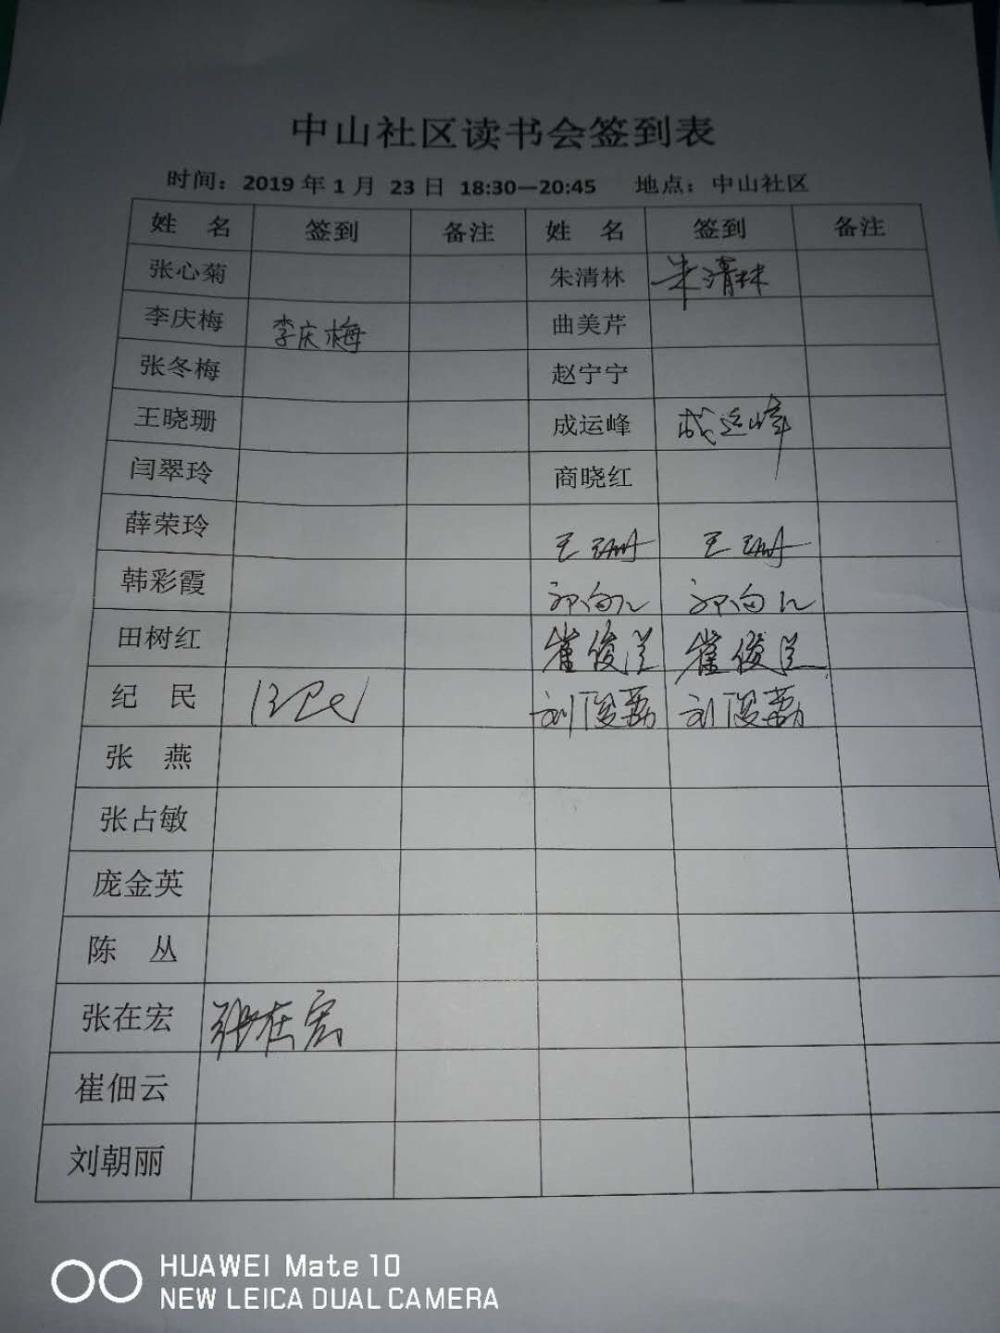 中山社区读书会签到表
时间：2019 年 1 月 23 日 18:30—20:45 地点：中山社区
姓 名 签到 备注 姓 名 签到 备注
张心菊 朱清林 朱清林
李庆梅 李庆梅 曲美芹
张冬梅 赵宁宁
王晓珊 成运峰 成运峰
闫翠玲 商晓红
薛荣玲 王珊 王珊
韩彩霞
田树红 崔俊 崔俊
纪 民 刘俊荔 刘俊荔
张 燕
张占敏
庞金英
陈 丛
张在宏 张在宏
崔佃云
刘朝丽
HUAWEI Mate 10
NEW LEICA DUAL CAMERA